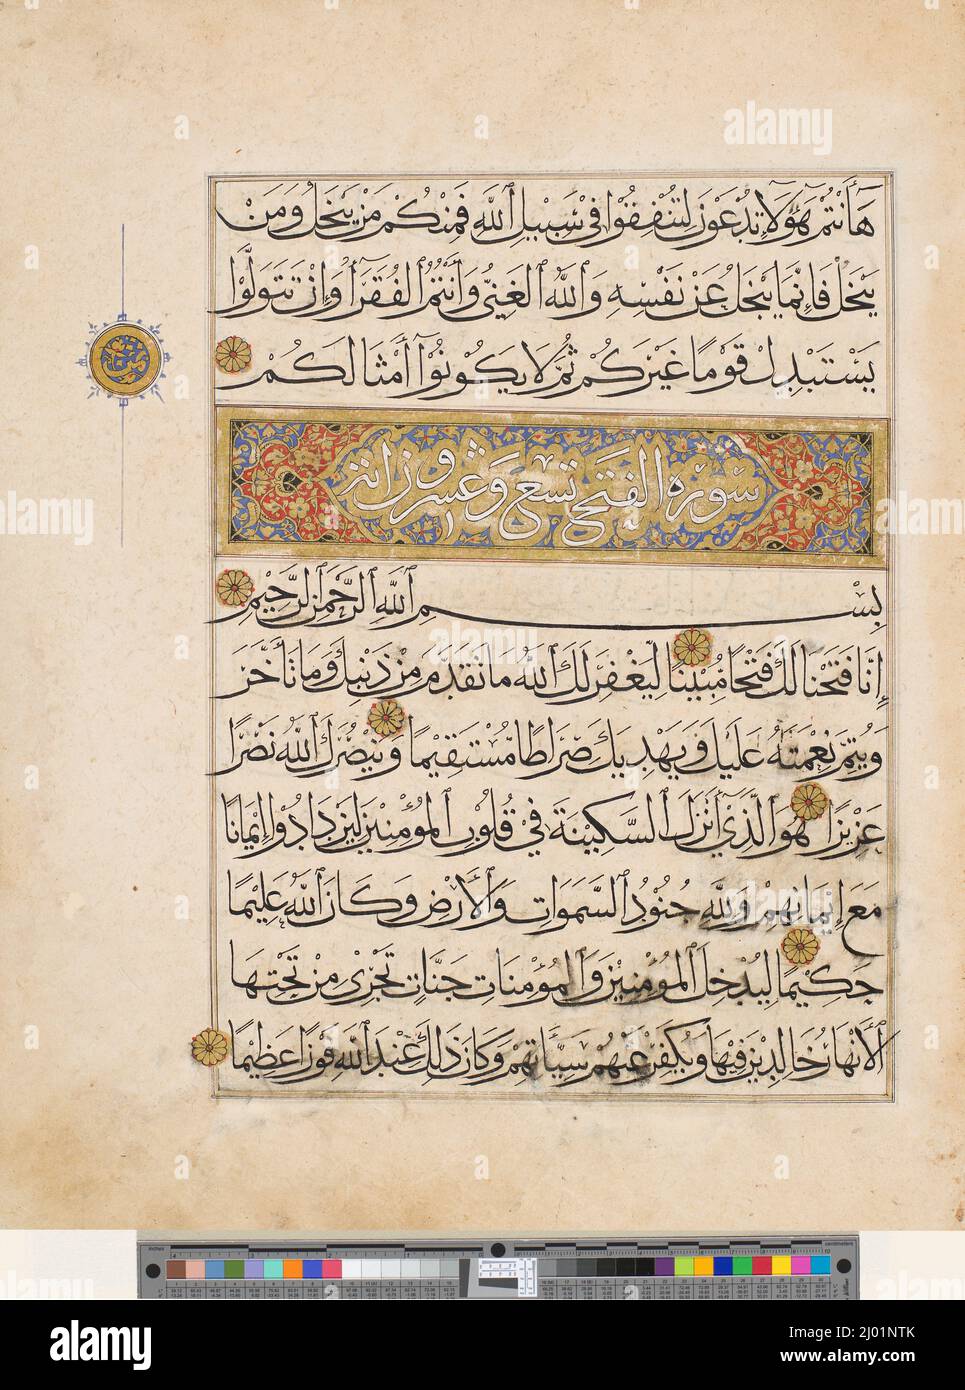 هَا أَنْتُمْ هَٰؤُلَاءِ تُدْعَوْنَ لِتُنْفِقُوا فِي سَبِيلِ ٱللَّهِ فَمِنْكُمْ مَنْ يَبْخَلُ وَمَنْ
يَبْخَلْ فَإِنَّمَا يَبْخَلُ عَنْ نَفْسِهِ وَٱللَّهُ ٱلْغَنِيُّ وَأَنْتُمُ ٱلْفُقَرَآءُ وَإِنْ تَتَوَلَّوْا
يَسْتَبْدِلْ قَوْمًا غَيْرَكُمْ ثُمَّ لَا يَكُونُوٓا أَمْثَالَكُمْ
سورة الفتح تسع وعشرون آية
بِسْمِ ٱللَّهِ ٱلرَّحْمَٰنِ ٱلرَّحِيمِ
إِنَّا فَتَحْنَا لَكَ فَتْحًا مُبِينًا لِيَغْفِرَ لَكَ ٱللَّهُ مَا تَقَدَّمَ مِنْ ذَنْبِكَ وَمَا تَأَخَّرَ
وَيُتِمَّ نِعْمَتَهُ عَلَيْكَ وَيَهْدِيَكَ صِرَاطًا مُسْتَقِيمًا وَيَنْصُرَكَ ٱللَّهُ نَصْرًا
عَزِيزًا هُوَ ٱلَّذِيٓ أَنْزَلَ ٱلسَّكِينَةَ فِي قُلُوبِ ٱلْمُؤْمِنِينَ لِيَزْدَادُوٓا إِيمَانًا
مَعَ إِيمَانِهِمْ وَلِلَّهِ جُنُودُ ٱلسَّمَوَاتِ وَٱلْأَرْضِ وَكَانَ ٱللَّهُ عَلِيمًا
حَكِيمًا لِيُدْخِلَ ٱلْمُؤْمِنِينَ وَٱلْمُؤْمِنَاتِ جَنَّاتٍ تَجْرِي مِنْ تَحْتِهَا
ٱلْأَنْهَارُ خَالِدِينَ فِيهَا وَيُكَفِّرَ عَنْهُمْ سَيِّئَاتِهِمْ وَكَانَ ذَلِكَ عِنْدَ ٱللَّهِ فَوْزًا عَظِيمًا
inches
centimeters
alamy
Image ID: 2J01NTK
www.alamy.com